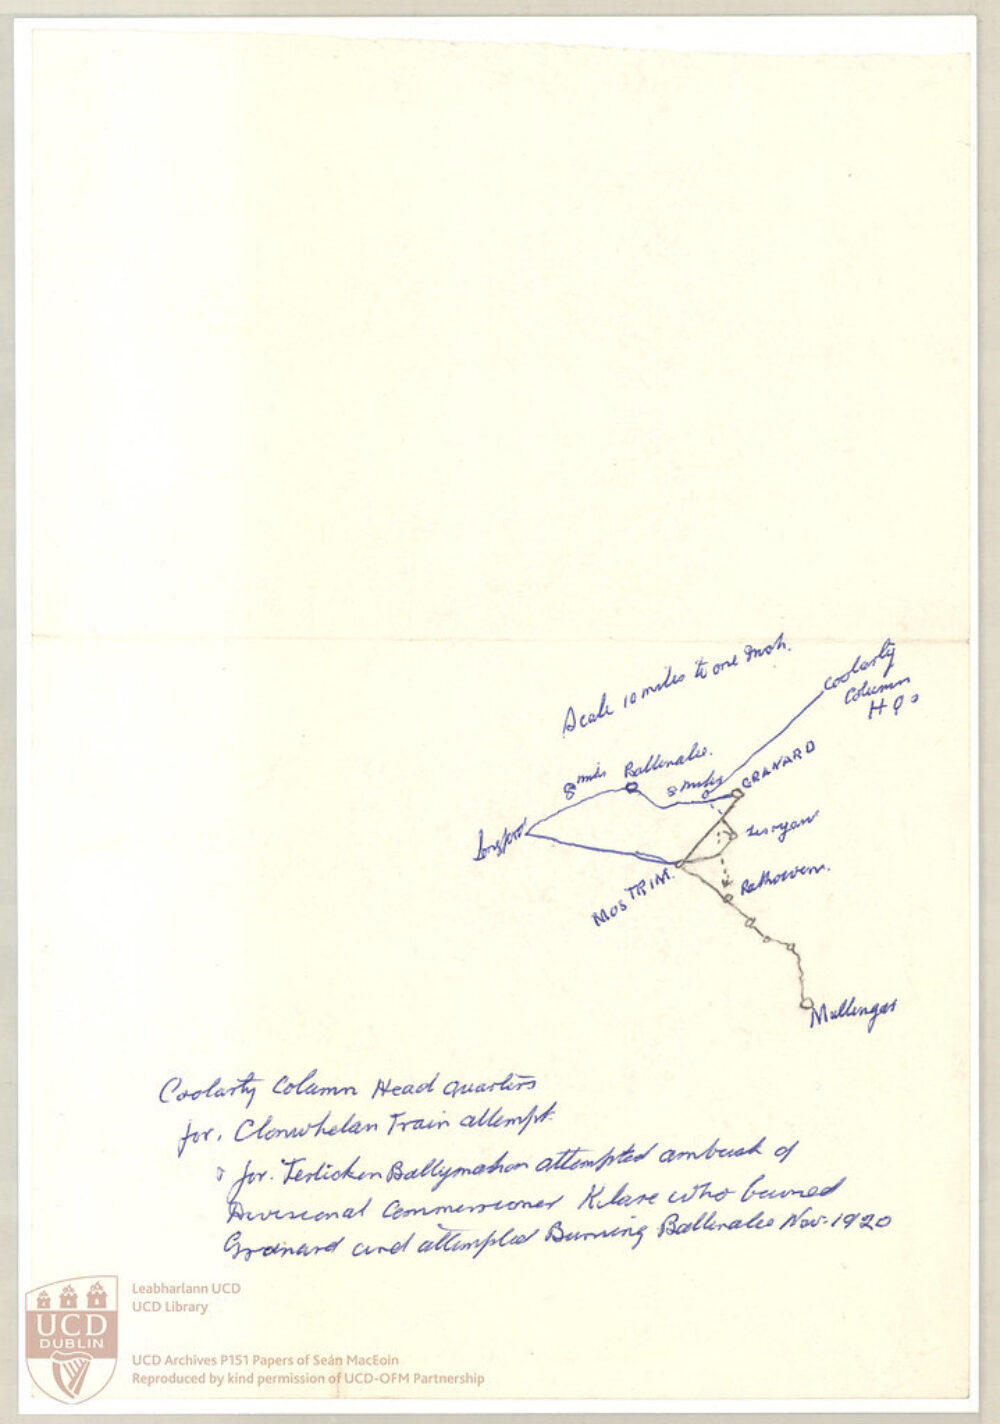 Scale 10 miles to one Inch.
Coolarty
Column
H Qs
8 miles Ballinalee.
8 miles
GRANARD
Longford
Lisryan
MOSTRIM.
Rathowen.
Mullingar
Coolarty Column Head quarters
for. Clonwhelan Train attempt.
& for. Terlicken Ballymahon attempted ambush of
Divisional Commissioner who burned
Granard and attempted Burning Ballinalee Nov-1920
UCD
DUBLIN
Leabharlann UCD
UCD Library
UCD Archives P151 Papers of Seán MacEoin
Reproduced by kind permission of UCD-OFM Partnership